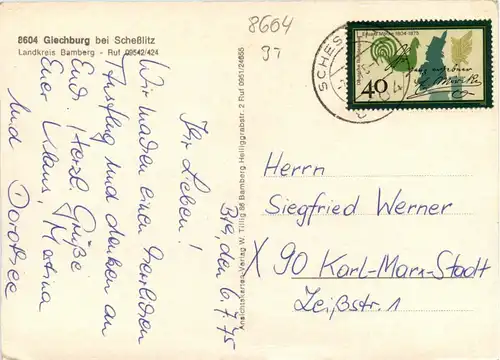 8604 Giechburg bei Scheßlitz
Landkreis Bamberg - Ruf 09542/424
8604
97
Bbg, den 6.7.75
Ihr Lieben!
Wir machen einen herrlichen
Ausflug und denken an
Euch. Herzl. Grüße
Euer Klaus, Martina
und Dorothee
Ansichtskarten-Verlag W. Tillig 86 Bamberg, Heiliggrabstr. 2 Ruf 0951/24655
SCHES
Eduard Mörike 1804-1875
40
Herrn
Siegfried Werner
X 90 Karl-Marx-Stadt
Zeißstr. 1